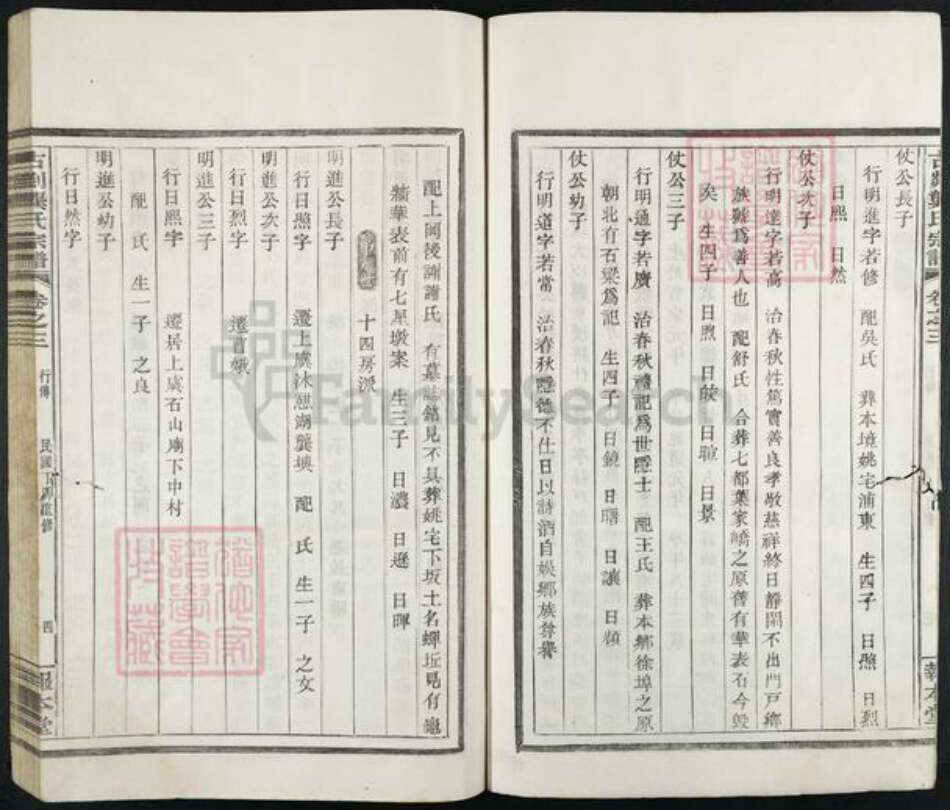 仗公長子
行明進字若修 配吳氏 葬本境姚宅浦東 生四子 日照 日烈
日熙 日然
仗公次子
行明達字若高 治春秋性篤實善良孝敬慈祥終日靜閒不出門戶鄉
族號爲善人也 配舒氏 合葬七都葉家嶠之原舊有華表石今毀
矣 生四子 日煦 日皎 日暄 日景
仗公三子
行明通字若廣 治春秋禮記爲世隱士 配王氏 葬本鄉徐埠之原
朝北有石梁爲記 生四子 日鏡 日曙 日讓 日頻
仗公幼子
行明道字若當 治春秋隱德不仕日以詩酒自娛鄉族尊譽
古剡龔氏宗譜 卷之三
報本堂
配上岡後謝謝氏 有墓誌銘見不具葬姚宅下坂土名蟬坵見有
新華表前有七星墩案 生三子 日濃 日遜 日暉
十四房派
明進公長子
行日照字 遷上虞沐憇湖龔墺 配 氏 生一子 之女
明進公次子
行日烈字 遷曹娥
明進公三子
行日熙字 遷居上虞石山廟下中村
配 氏 生一子 之良
明進公幼子
行日然字
古剡龔氏宗譜 卷之三 行傳 民國 重修 四 報本堂
FamilySearch